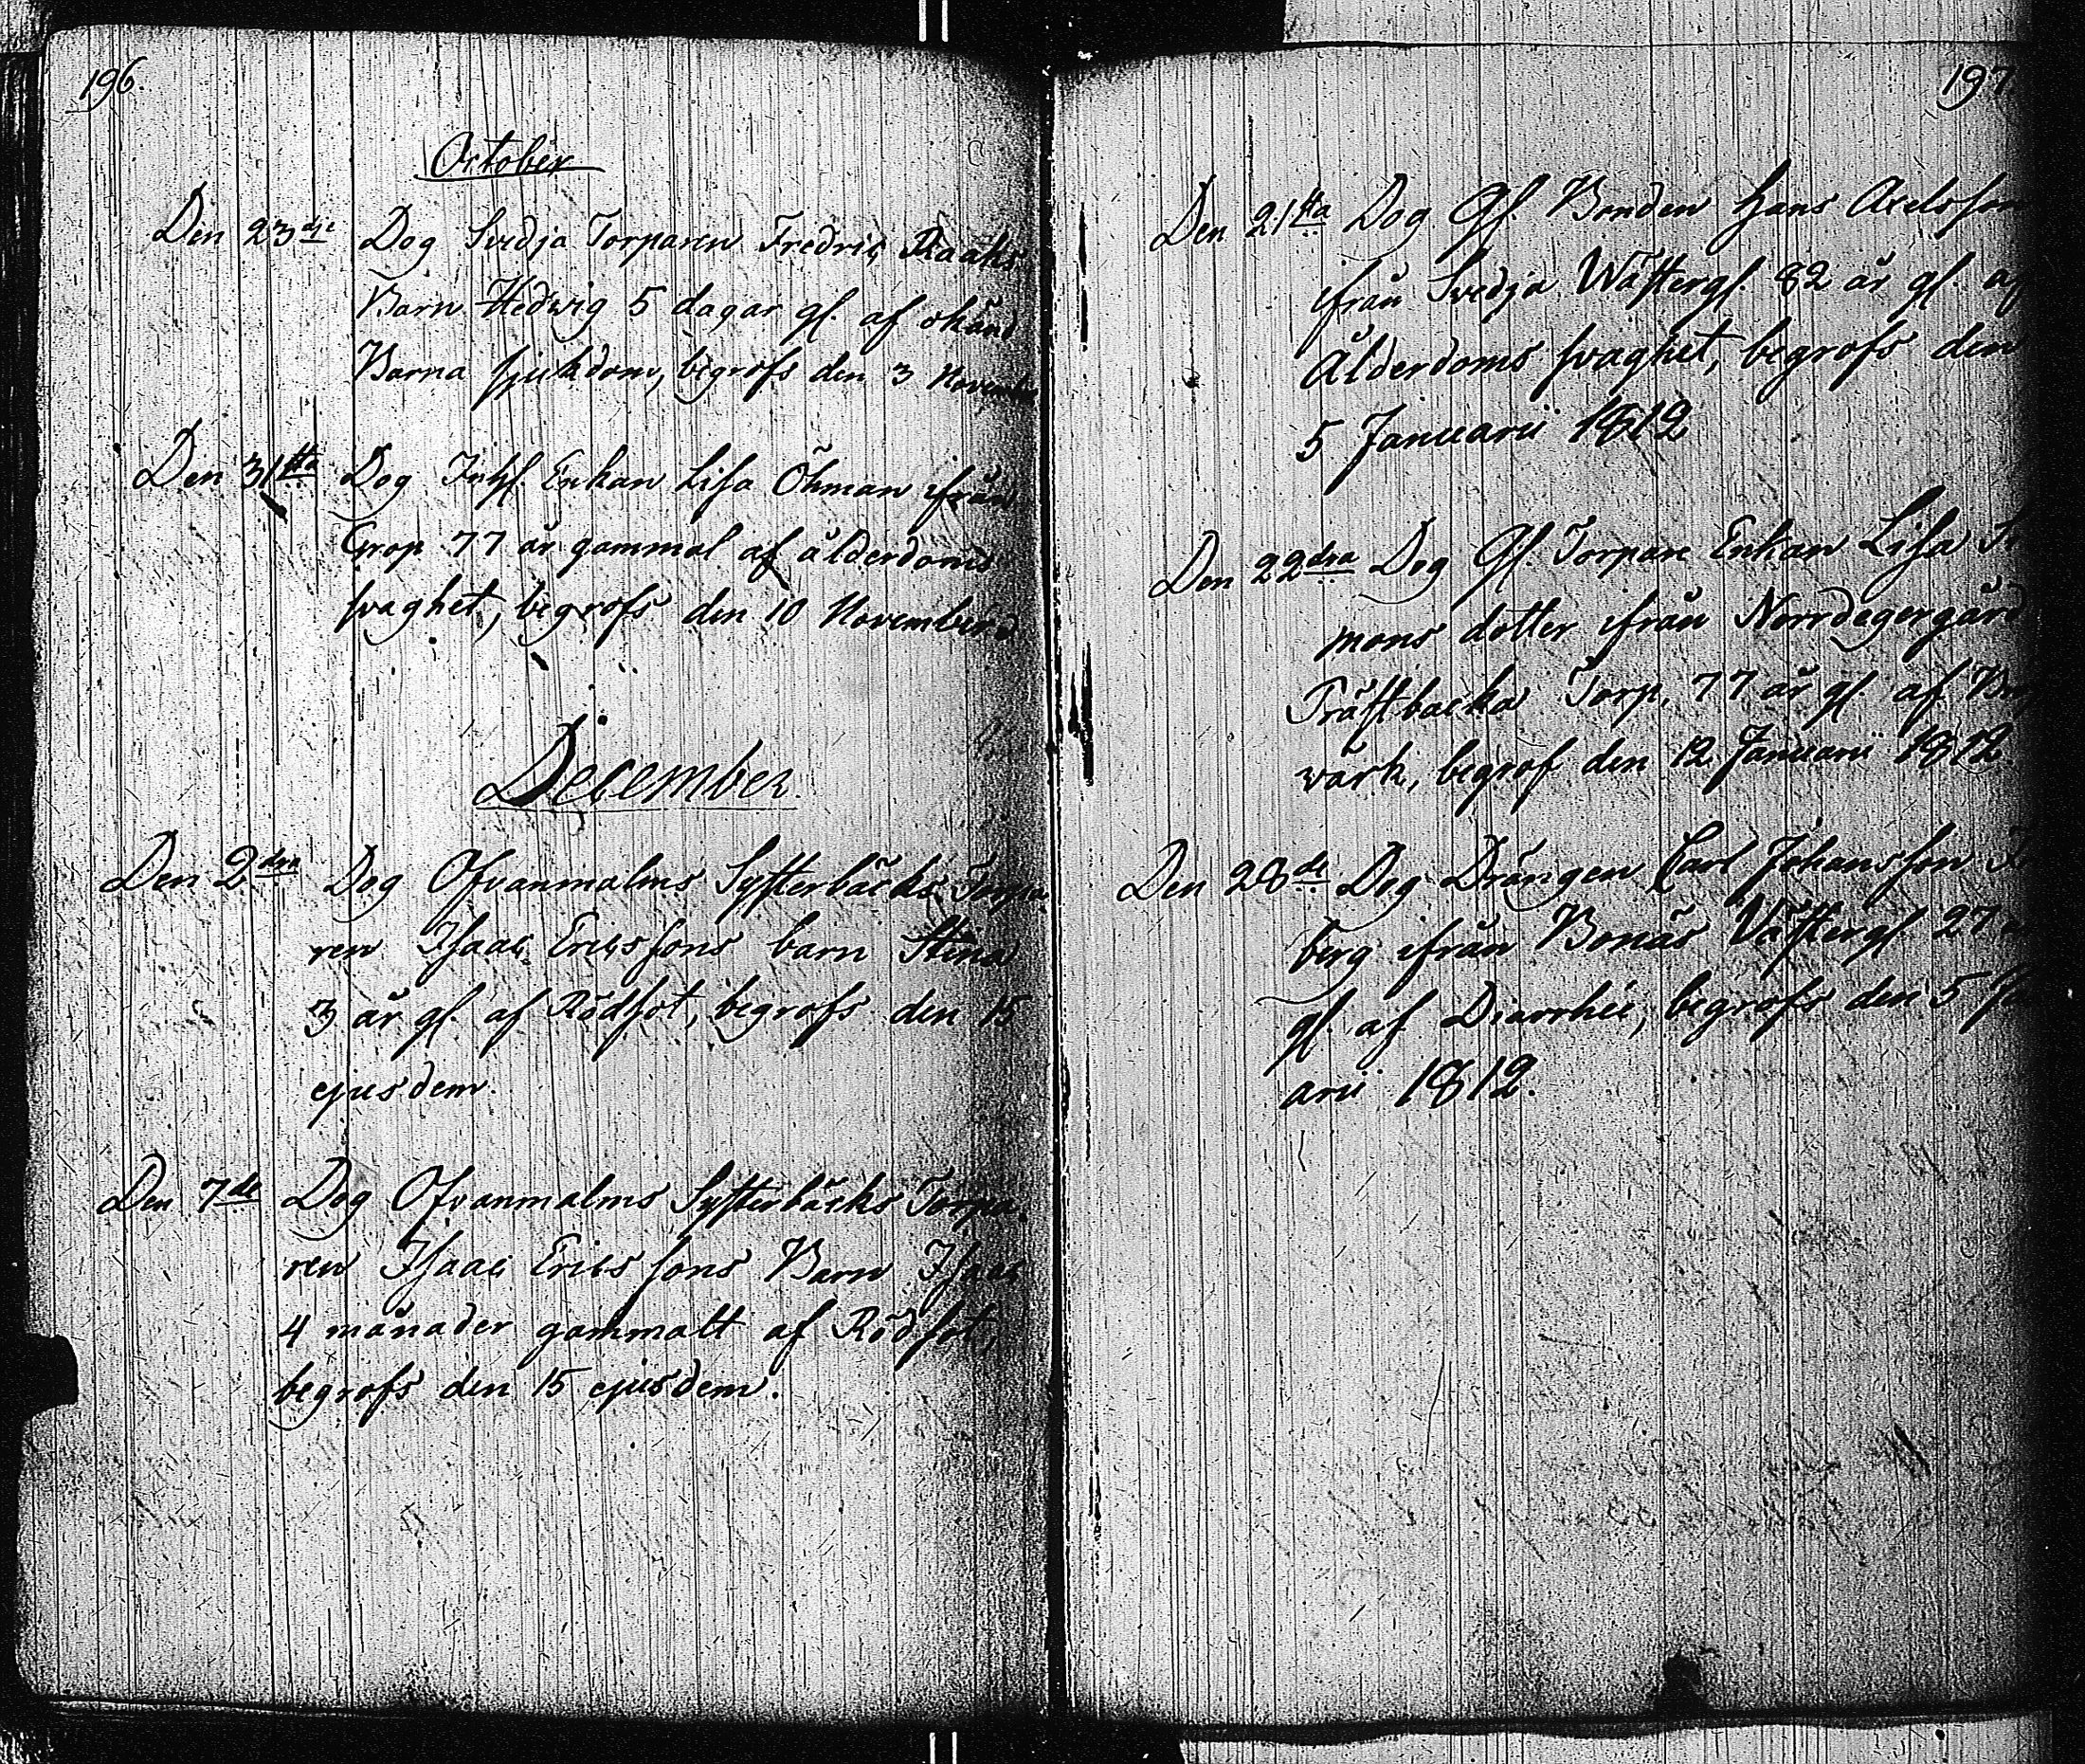 196.
October
Den 23de Dog Svedja Torparen Fredric Raaks
Barn Hedwig 5 dagar gl. af okänd
Barna sjukdom, begrofs den 3 November
Den 31sta Dog Inhs. Enkan Lisa Öhman ifrån
Grop 77 år gammal af ålderdoms
svaghet, begrofs den 10 November
December.
Den 2dra Dog Ofvanmalms Systerbäcks Torpa
ren Isaac Ericssons barn Stina
3 år gl. af Rödsot, begrofs den 15
ejusdem.
Den 7de Dog Ofvanmalms Systerbäcks Torpa
ren Isaac Ericssons Barn Isaac
4 månader gammalt af Rödsot,
begrofs den 15 ejusdem.
197
Den 21sta Dog Gl. Bonden Hans Axelsson
ifrån Svedja Wästergl. 82 år gl. af
Ålderdoms svaghet, begrofs den
5 Januarii 1812
Den 22dra Dog Gl. Torpare Enkan Lisa
mons dotter ifrån Norrdegergård
Prästbacka Torp, 77 år gl. af
wärk, begrof den 12 Januarii 1812.
Den 28de Dog Drängen Carl Johansson
berg ifrån Bonäs Västergl 27
gl. af Diarrhée, begrofs den 5
arii 1812.